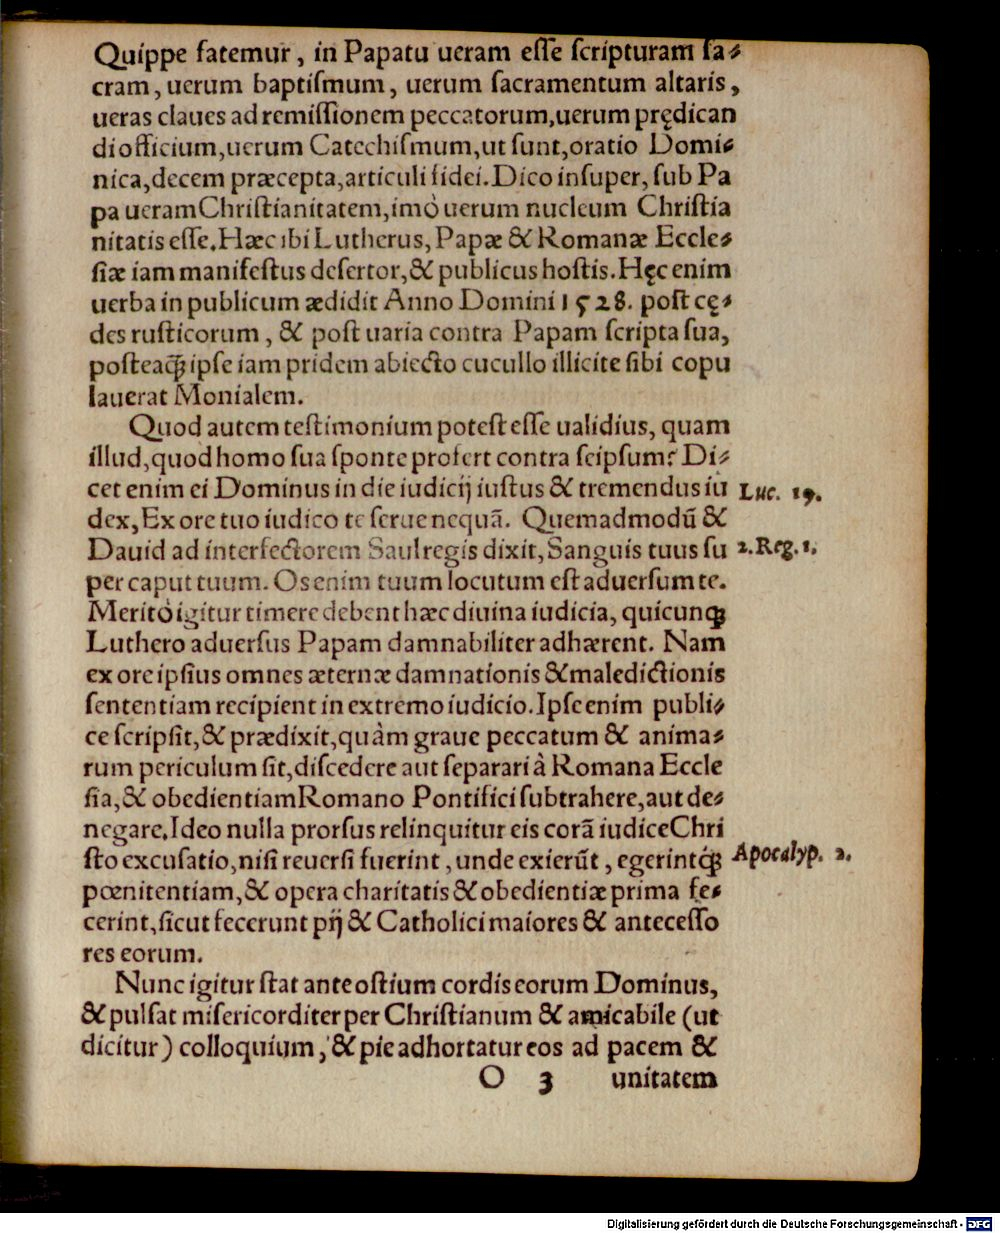 Quippe fatemur, in Papatu ueram eſſe ſcripturam ſa⸗
cram, uerum baptiſmum, uerum ſacramentum altaris,
ueras claues ad remiſſionem peccatorum, uerum prędican
di officium, uerum Catechiſmum, ut ſunt, oratio Domi⸗
nica, decem præcepta, articuli fidei. Dico inſuper, ſub Pa
pa ueram Chriſtianitatem, imò uerum nucleum Chriſtia
nitatis eſſe. Hæc ibi Lutherus, Papæ & Romanæ Eccle⸗
ſiæ iam manifeſtus deſertor, & publicus hoſtis. Hęc enim
uerba in publicum ædidit Anno Domini 1528. poſt cę⸗
des ruſticorum, & poſt uaria contra Papam ſcripta ſua,
poſteaq̃ ipſe iam pridem abiecto cucullo illicite ſibi copu
lauerat Monialem.
Quod autem teſtimonium poteſt eſſe ualidius, quam
illud, quod homo ſua ſponte profert contra ſeipſum? Di⸗
cet enim ei Dominus in die iudicij iuſtus & tremendus iu
Luc. 19.
dex, Ex ore tuo iudico te ſerue nequã. Quemadmodũ &
Dauid ad interfectorem Saul regis dixit, Sanguis tuus ſu
2. Reg. 1.
per caput tuum. Os enim tuum locutum eſt aduerſum te.
Meritò igitur timere debent hæc diuina iudicia, quicunqꝫ
Luthero aduerſus Papam damnabiliter adhærent. Nam
ex ore ipſius omnes æternæ damnationis & maledictionis
ſententiam recipient in extremo iudicio. Ipſe enim publi⸗
ce ſcripſit, & prædixit, quàm graue peccatum & anima⸗
rum periculum ſit, diſcedere aut ſeparari à Romana Eccle
ſia, & obedientiam Romano Pontifici ſubtrahere, aut de⸗
negare. Ideo nulla prorſus relinquitur eis corã iudice Chri
ſto excuſatio, niſi reuerſi fuerint, unde exierũt, egerintq́ꝫ
Apocalyp. 2.
pœnitentiam, & opera charitatis & obedientiæ prima fe⸗
cerint, ſicut fecerunt pij & Catholici maiores & anteceſſo
res eorum.
Nunc igitur ſtat ante oſtium cordis eorum Dominus,
& pulſat miſericorditer per Chriſtianum & amicabile (ut
dicitur) colloquium, & pie adhortatur eos ad pacem &
O 3 unitatem
Digitalisierung gefördert durch die Deutsche Forschungsgemeinschaft - DFG